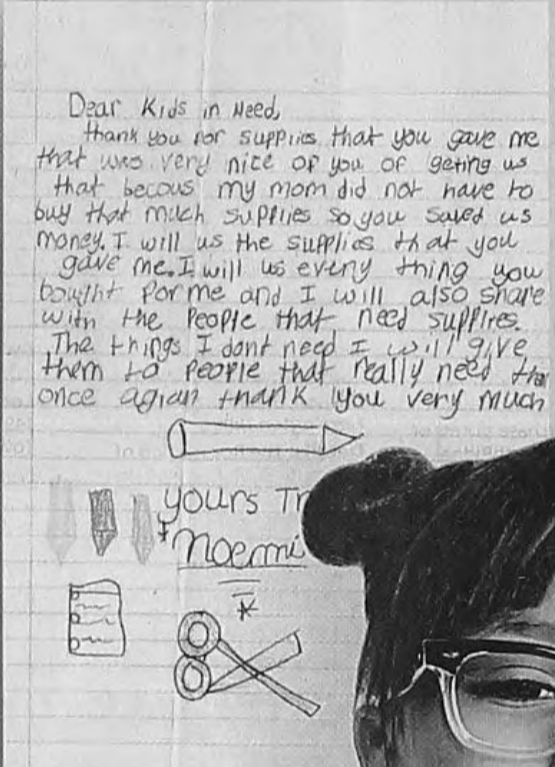 Dear Kids in Need,
thank you for supplies that you gave me
that was very nice of you of geting us
that becous my mom did not have to
buy that much supplies so you saved us
money. I will us the supplies that you
gave me. I will us every thing you
bought for me and I will also share
with the people that need supplies.
The things I dont need I will give
them to people that really need
once agian thank you very much
yours
Noemi